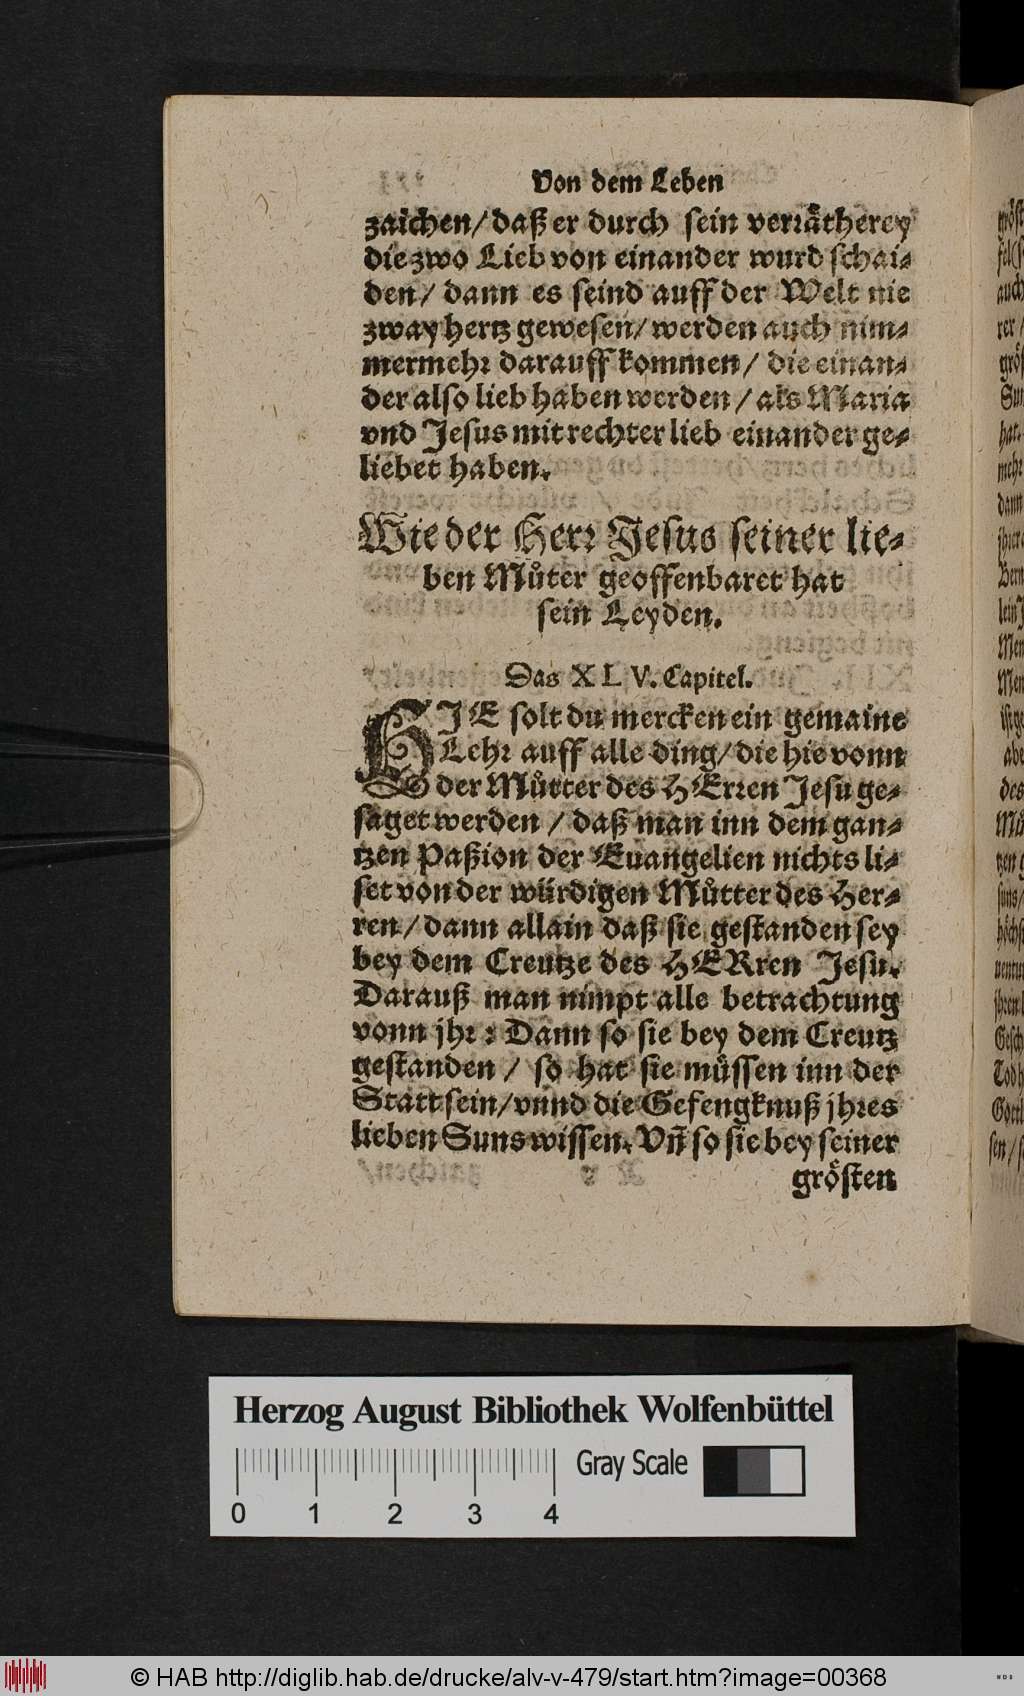 Von dem Leben
zaichen/ daß er durch sein verrätherey
die zwo Lieb von einander wurd schai⸗
den/ dann es seind auff der Welt nie
zway hertz gewesen/ werden auch nim⸗
mermehr darauff kommen/ die einan⸗
der also lieb haben werden/ als Maria
vnd Jesus mit rechter lieb einander ge⸗
liebet haben.
Wie der Herr Jesus seiner lie⸗
ben Můter geoffenbaret hat
sein Leyden.
Das XLV. Capitel.
HJE solt du mercken ein gemaine
Lehr auff alle ding/ die hie vonn
der Můtter des HErren Jesu ge⸗
saget werden/ daß man inn dem gan⸗
tzen Paßion der Euangelien nichts li⸗
set von der würdigen Můtter des Her⸗
ren/ dann allain daß sie gestanden sey
bey dem Creutze des HERren Jesu.
Darauß man nimpt alle betrachtung
vonn jhr: Dann so sie bey dem Creutz
gestanden/ so hat sie müssen inn der
Statt sein/ vnnd die Gefengknuß jhres
lieben Suns wissen. Vñ so sie bey seiner
grösten
Herzog August Bibliothek Wolfenbüttel
Gray Scale
0 1 2 3 4
© HAB http://diglib.hab.de/drucke/alv-v-479/start.htm?image=00368